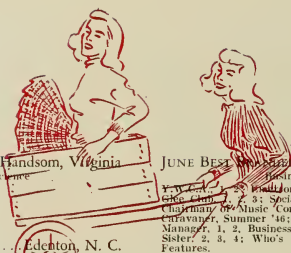 Handsom, Virginia
... Edenton, N. C.
JUNE BEST
Y.W.C.A., 1, 2;
Glee Club, 1, 2, 3; Social
Chairman of Music Com
Caravaner, Summer '46;
Manager, 1, 2, Business
Sister, 2, 3, 4; Who's
Features.